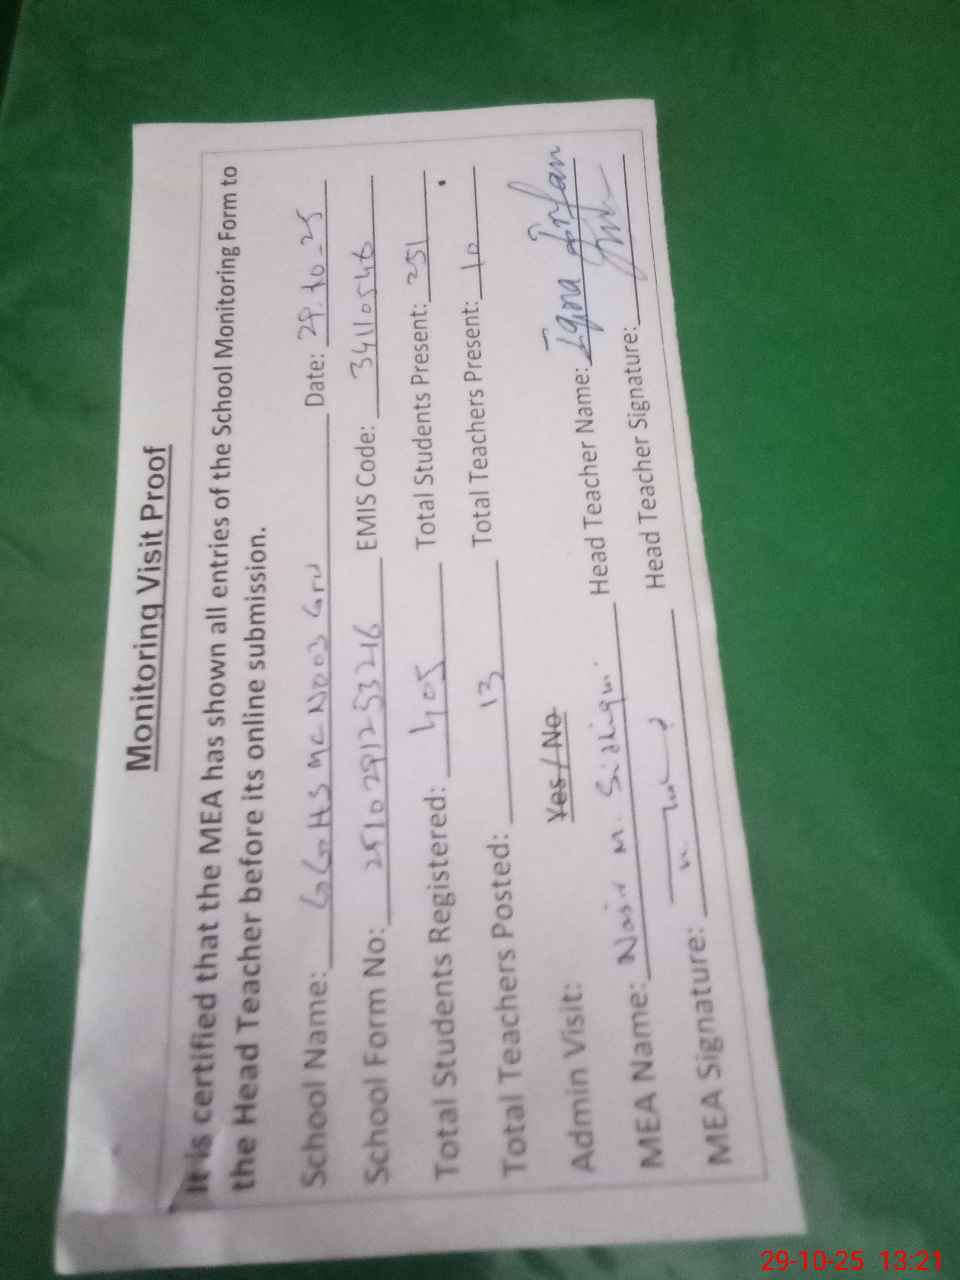 Monitoring Visit Proof
It is certified that the MEA has shown all entries of the School Monitoring Form to
the Head Teacher before its online submission.
School Name: GGHS MC No03 Grw Date: 29.10-25
School Form No: 2510291253216 EMIS Code: 34110546
Total Students Registered: 405 Total Students Present: 251
Total Teachers Posted: 13 Total Teachers Present: 10
Admin Visit: Yes / No
MEA Name: M. Head Teacher Name: Iqra Irfan
MEA Signature: Head Teacher Signature:
29-10-25 13:21